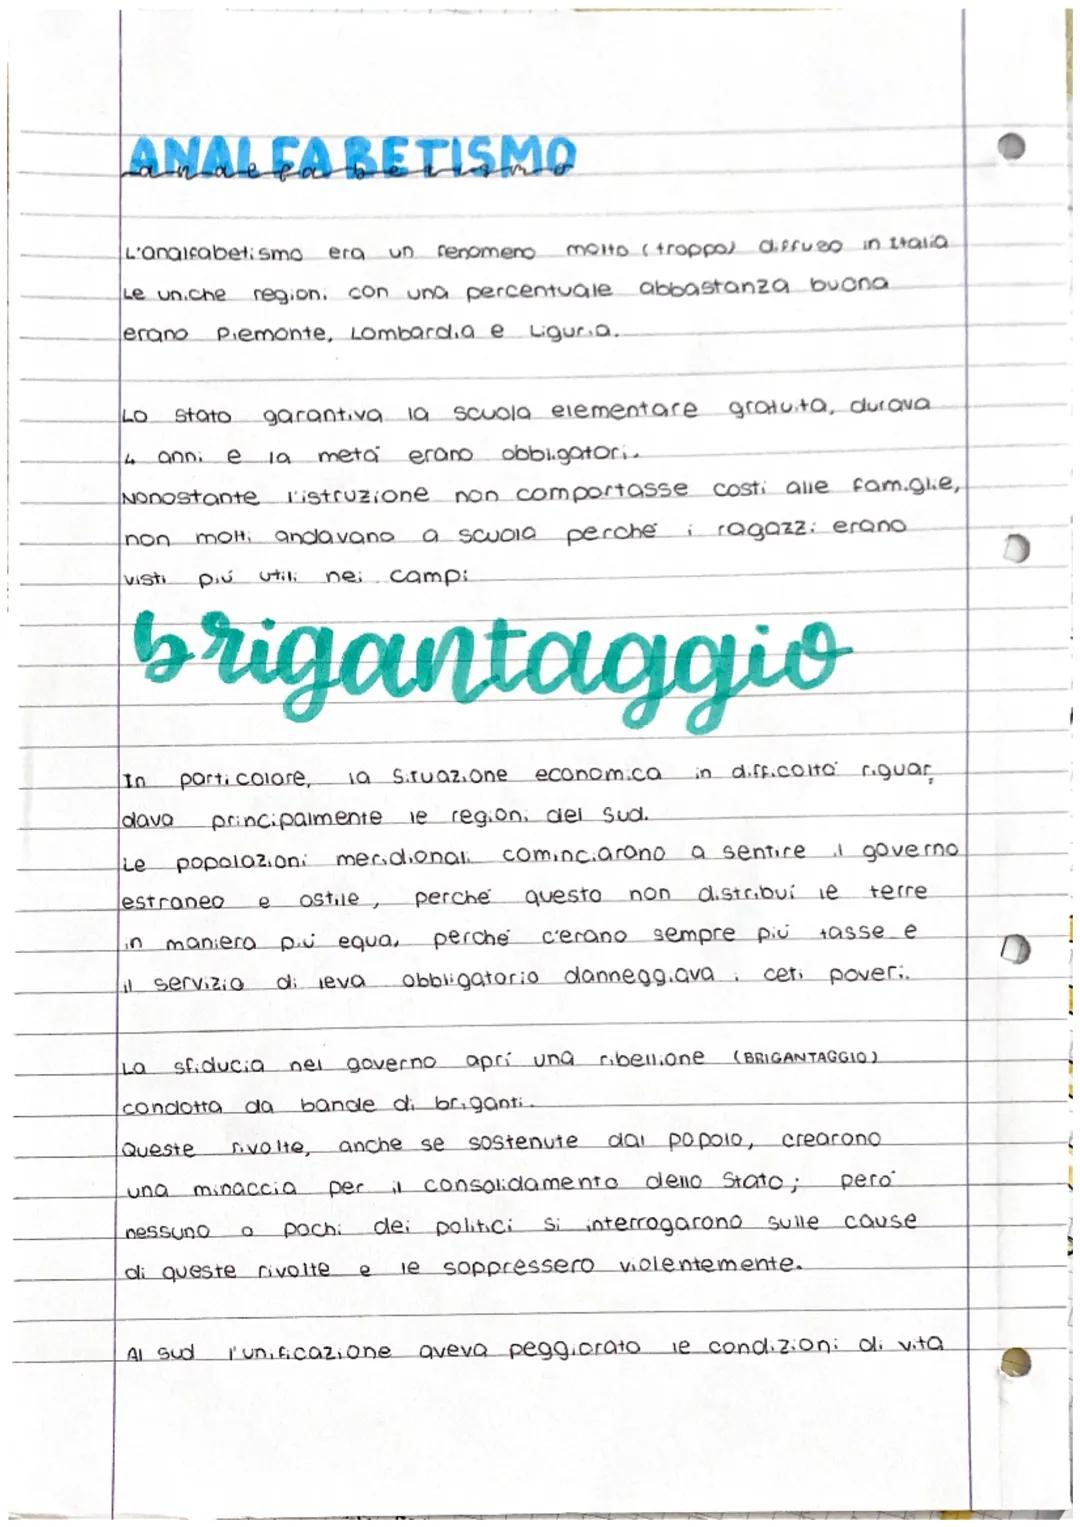 ANALFABETISMO
analfabetismo
L'analfabetismo era un fenomeno molto (troppo) diffuso in Italia
Le uniche regioni con una percentuale abbastanza buona
erano Piemonte, Lombardia e Liguria.
Lo stato garantiva la scuola elementare gratuita, durava
4 anni e la metá erano obbligatori.
Nonostante l'istruzione non comportasse costi alle famiglie,
non molti andavano a scuola perché i ragazzi erano
visti piú utili nei campi
brigantaggio
In particolare, la situazione economica in difficoltá riguar
dava principalmente le regioni del Sud.
Le popolazioni meridionali cominciarono a sentire il governo
estraneo e ostile, perché questo non distribuí le terre
in maniera piú equa, perché c'erano sempre piú tasse e
il servizio di leva obbligatorio danneggiava i ceti poveri.
La sfiducia nel governo aprí una ribellione (BRIGANTAGGIO)
condotta da bande di briganti.
Queste rivolte, anche se sostenute dal popolo, crearono
una minaccia per il consolidamento dello Stato; peró
nessuno o pochi dei politici si interrogarono sulle cause
di queste rivolte e le soppressero violentemente.
Al sud l'unificazione aveva peggiorato le condizioni di vita